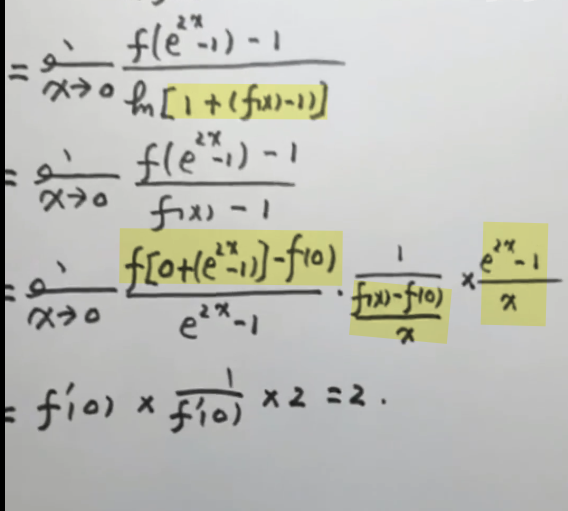 = lim x→0 f(e^{2x}-1)-1 / ln[1+(f(x)-1)]
= lim x→0 f(e^{2x}-1)-1 / f(x)-1
= lim x→0 f[0+(e^{2x}-1)]-f(0) / e^{2x}-1 · 1 / (f(x)-f(0) / x) × e^{2x}-1 / x
= f'(0) × 1 / f'(0) × 2 = 2.